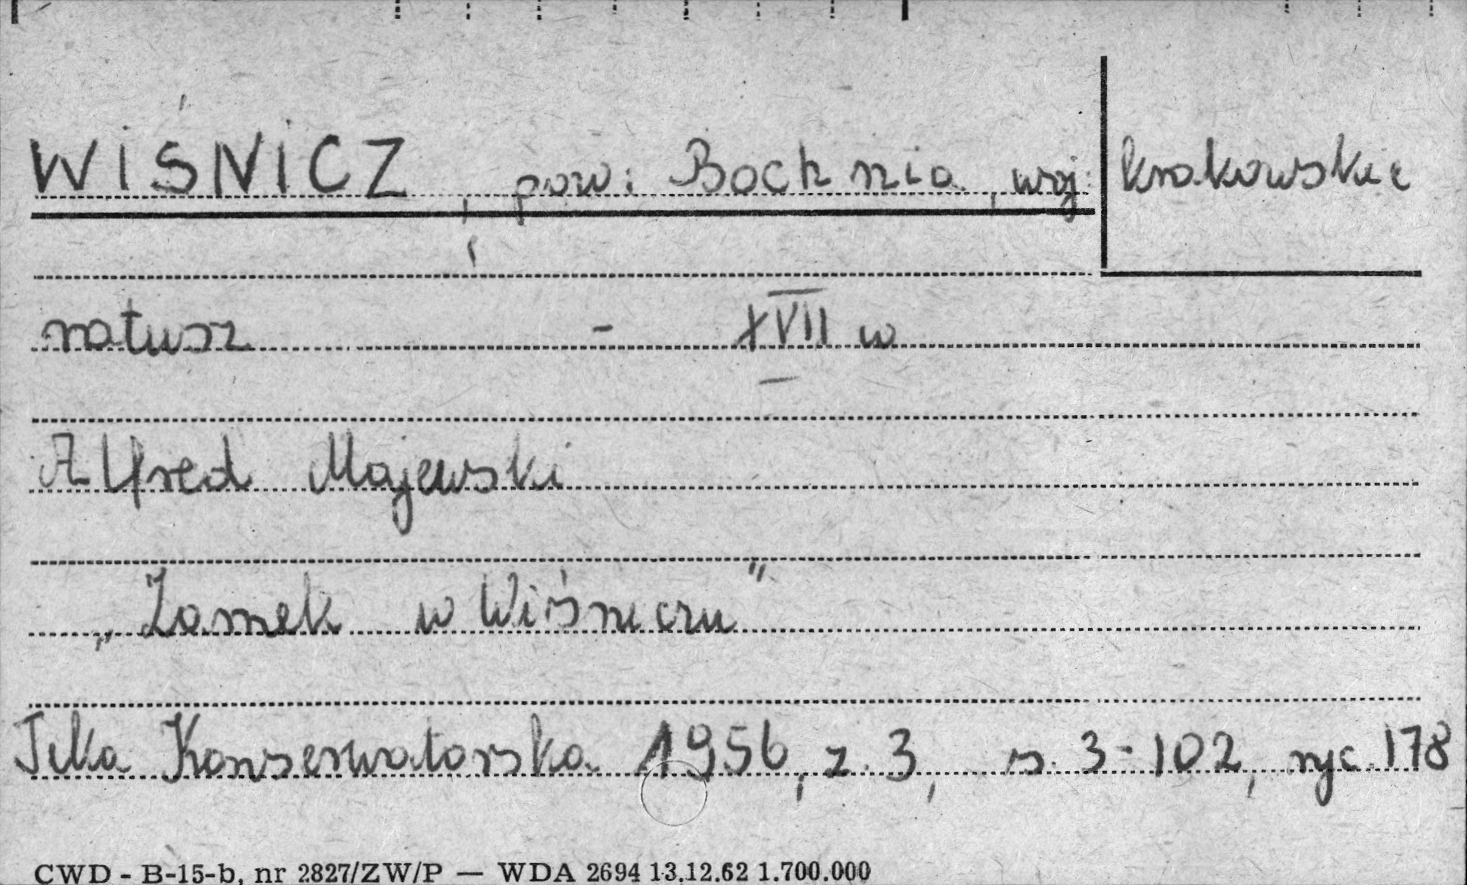 WIŚNICZ, pow: Bochnia, woj: krakowskie
ratusz - XVII w
Alfred Majewski
„Zamek w Wiśniczu"
Teka Konserwatorska 1956, z. 3, s. 3-102, ryc. 178
CWD - B-15-b, nr 2827/ZW/P — WDA 2694 13.12.62 1.700.000